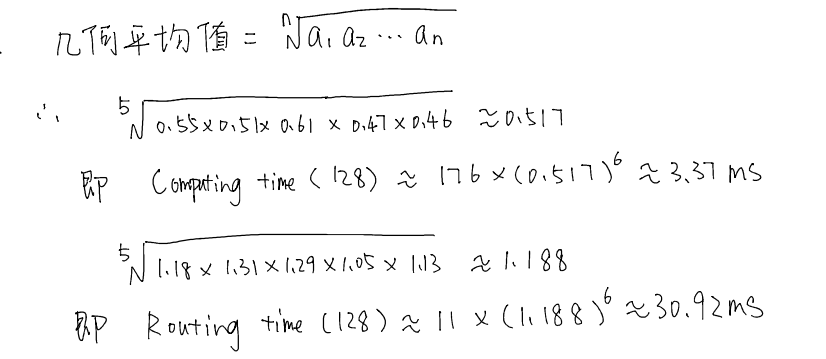 几何平均值 = ⁿ√(a₁ a₂ ⋯ aₙ)
∴ ⁵√(0.55×0.51×0.61×0.47×0.46) ≈0.517
即 Computing time (128) ≈ 176×(0.517)⁶ ≈3.37 ms
⁵√(1.18×1.31×1.29×1.05×1.13) ≈1.188
即 Routing time (128) ≈ 11 × (1.188)⁶ ≈30.92ms